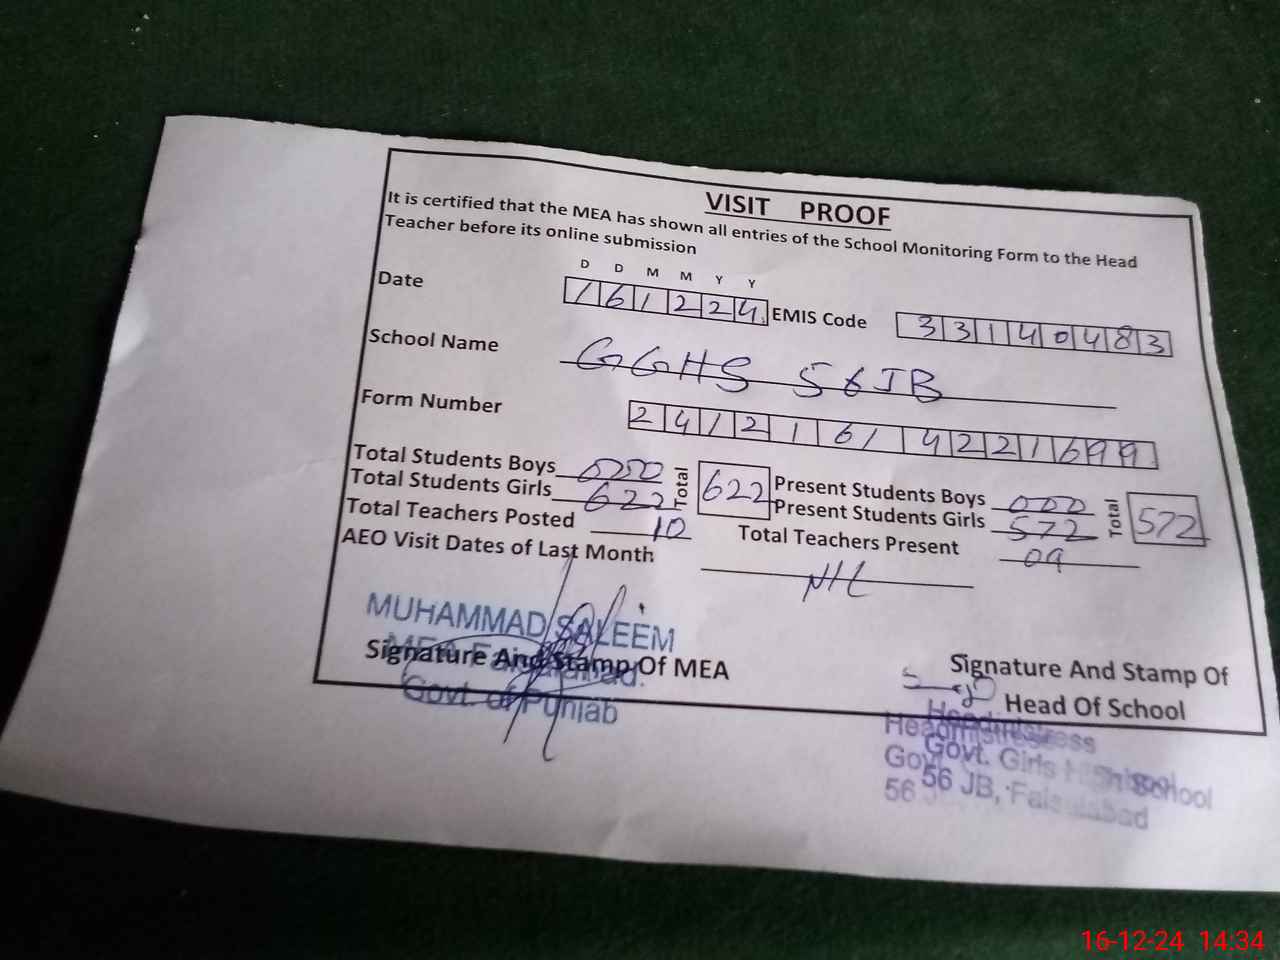 VISIT PROOF
It is certified that the MEA has shown all entries of the School Monitoring Form to the Head
Teacher before its online submission
D D M M Y Y
Date 161224 EMIS Code 33140483
School Name GGHS 56JB
Form Number 24121614221699
Total Students Boys 000 Total 622 Present Students Boys 000 Total 572
Total Students Girls 622 Present Students Girls 572
Total Teachers Posted 10 Total Teachers Present 09
AEO Visit Dates of Last Month NIL
MUHAMMAD SALEEM
MEA Faisalabad.
Govt. of Punjab
Signature And Stamp Of MEA
Signature And Stamp Of
Head Of School
Headmistress
Govt. Girls High School
56 JB, Faisalabad
16-12-24 14:34